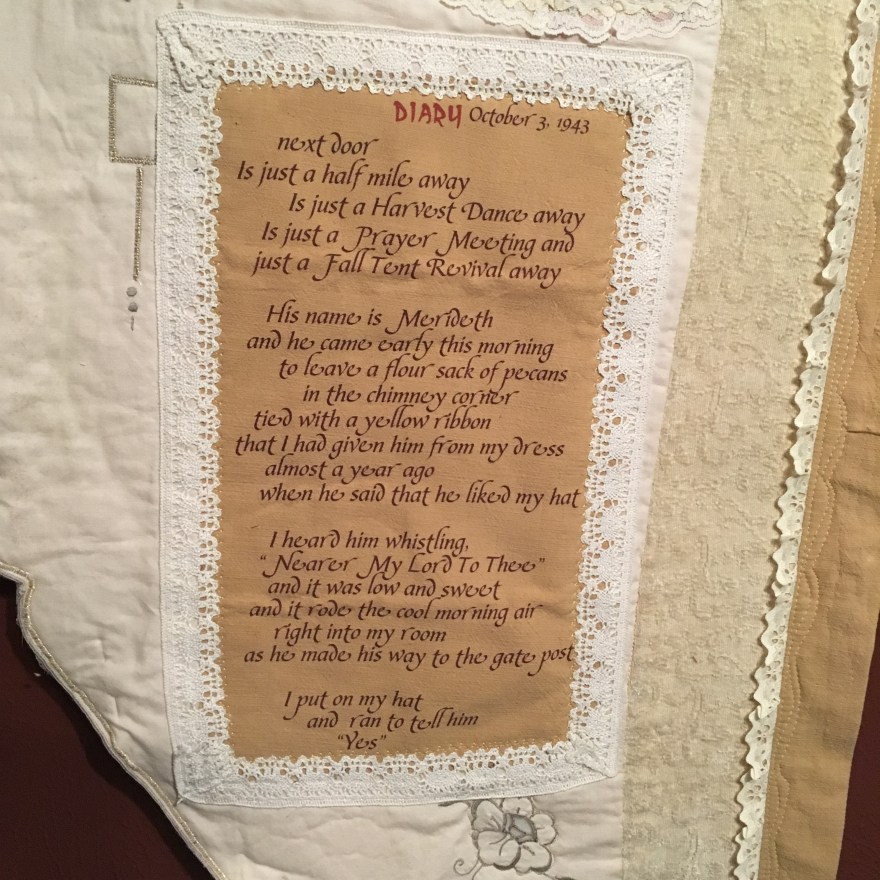 DIARY October 3, 1943
next door
Is just a half mile away
Is just a Harvest Dance away
Is just a Prayer Meeting and
just a Fall Tent Revival away
His name is Merideth
and he came early this morning
to leave a flour sack of pecans
in the chimney corner
tied with a yellow ribbon
that I had given him from my dress
almost a year ago
when he said that he liked my hat
I heard him whistling,
"Nearer My Lord To Thee"
and it was low and sweet
and it rode the cool morning air
right into my room
as he made his way to the gate post
I put on my hat
and ran to tell him
"Yes"